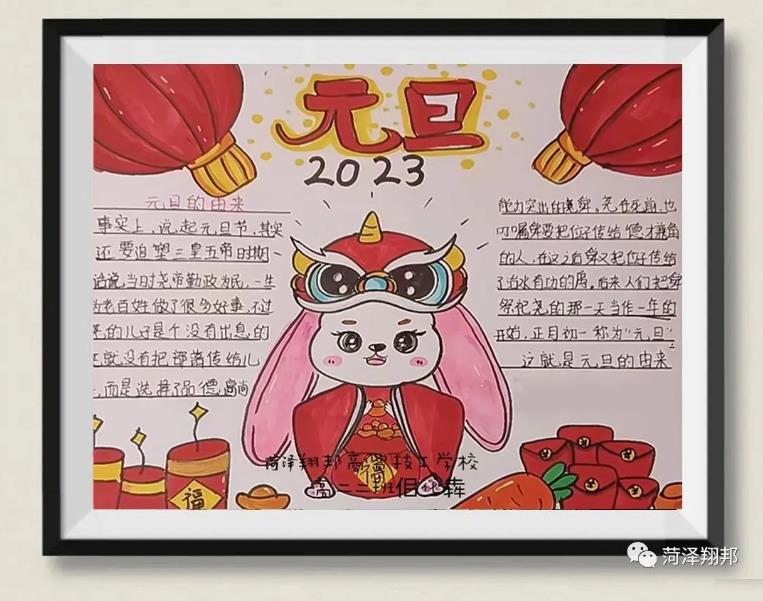 元旦
2023
元旦的由来
事实上，说起元旦节，其实
还要追塑三皇五帝时期
当时尧帝勤政为民，一生
老百姓做了很多好事，不过
的儿子是个没有出息的
就没有把部落传给儿
，而是选择了品德高尚
能力突出的舜，尧在死前，也
叮嘱舜要把位子传给德才兼备
的人，在这之后舜又把位子传给
了治水有功的禹，后来人们把舜
祭祀尧的那一天当作一年的
开始，正月初一称为"元旦"，
这就是元旦的由来
福
福
菏泽翔邦高级技工学校
高二二班
菏泽翔邦